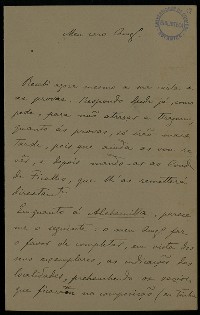 Meu caro Bragᵃ
Recebi agora mesmo a sua carta e
as provas. Respondo desde já,
para não atrasar a tiragem
quanto às provas, só irão mais
tarde, pois que ainda as vou re-
ver, e depois mando-as ao Conde
de Ficalho, que lh'as remetterá
directamente.
Emquanto á Alchemilla, parece-
me o seguinte: o meu amᵒ faz
o favor de completar, em vista dos
seus exemplares, as indicações das
localidades, prehenchendo os
que ficaram na composição; eu tenho